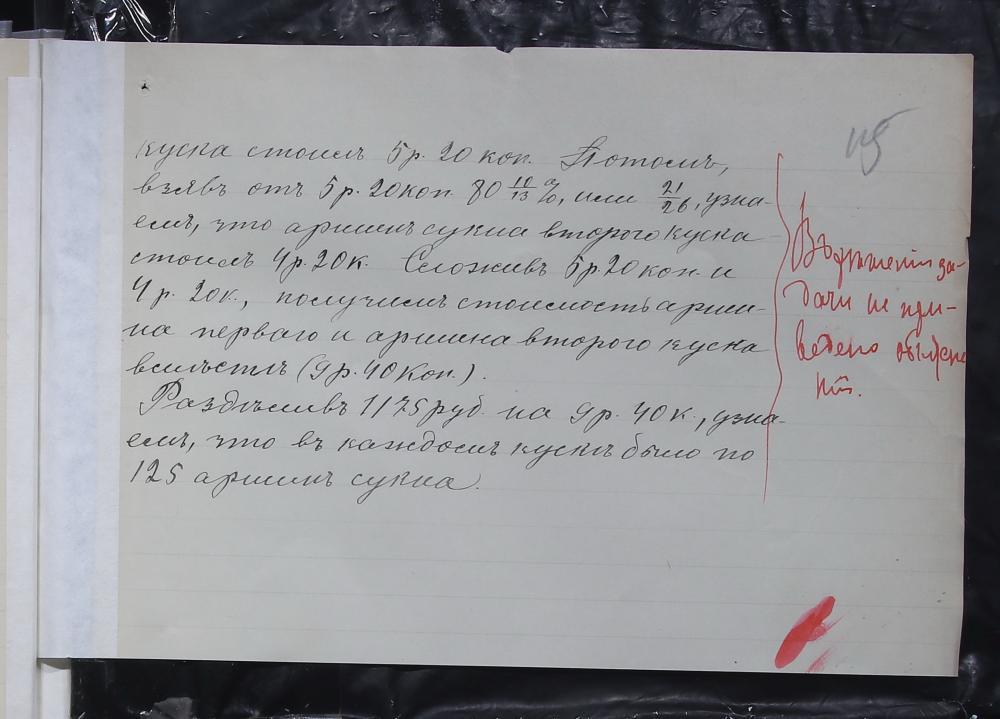 куска стоилъ 5р. 20 коп. Потомъ,
взявъ отъ 5р. 20коп. 80 10/13 %, или 21/26, узна-
емъ, что аршинъ сукна второго куска
стоилъ 4р. 20к. Сложивъ 5р. 20коп. и
4р. 20к., получимъ стоимость арши-
на перваго и аршина второго куска
вмѣстѣ (9р. 40коп.).
Раздѣливъ 1175 руб. на 9р. 40к., узна-
емъ, что въ каждомъ кускѣ было по
125 аршинъ сукна.
Въ рѣшеніи за-
дачи не при-
ведено объясне
ній.